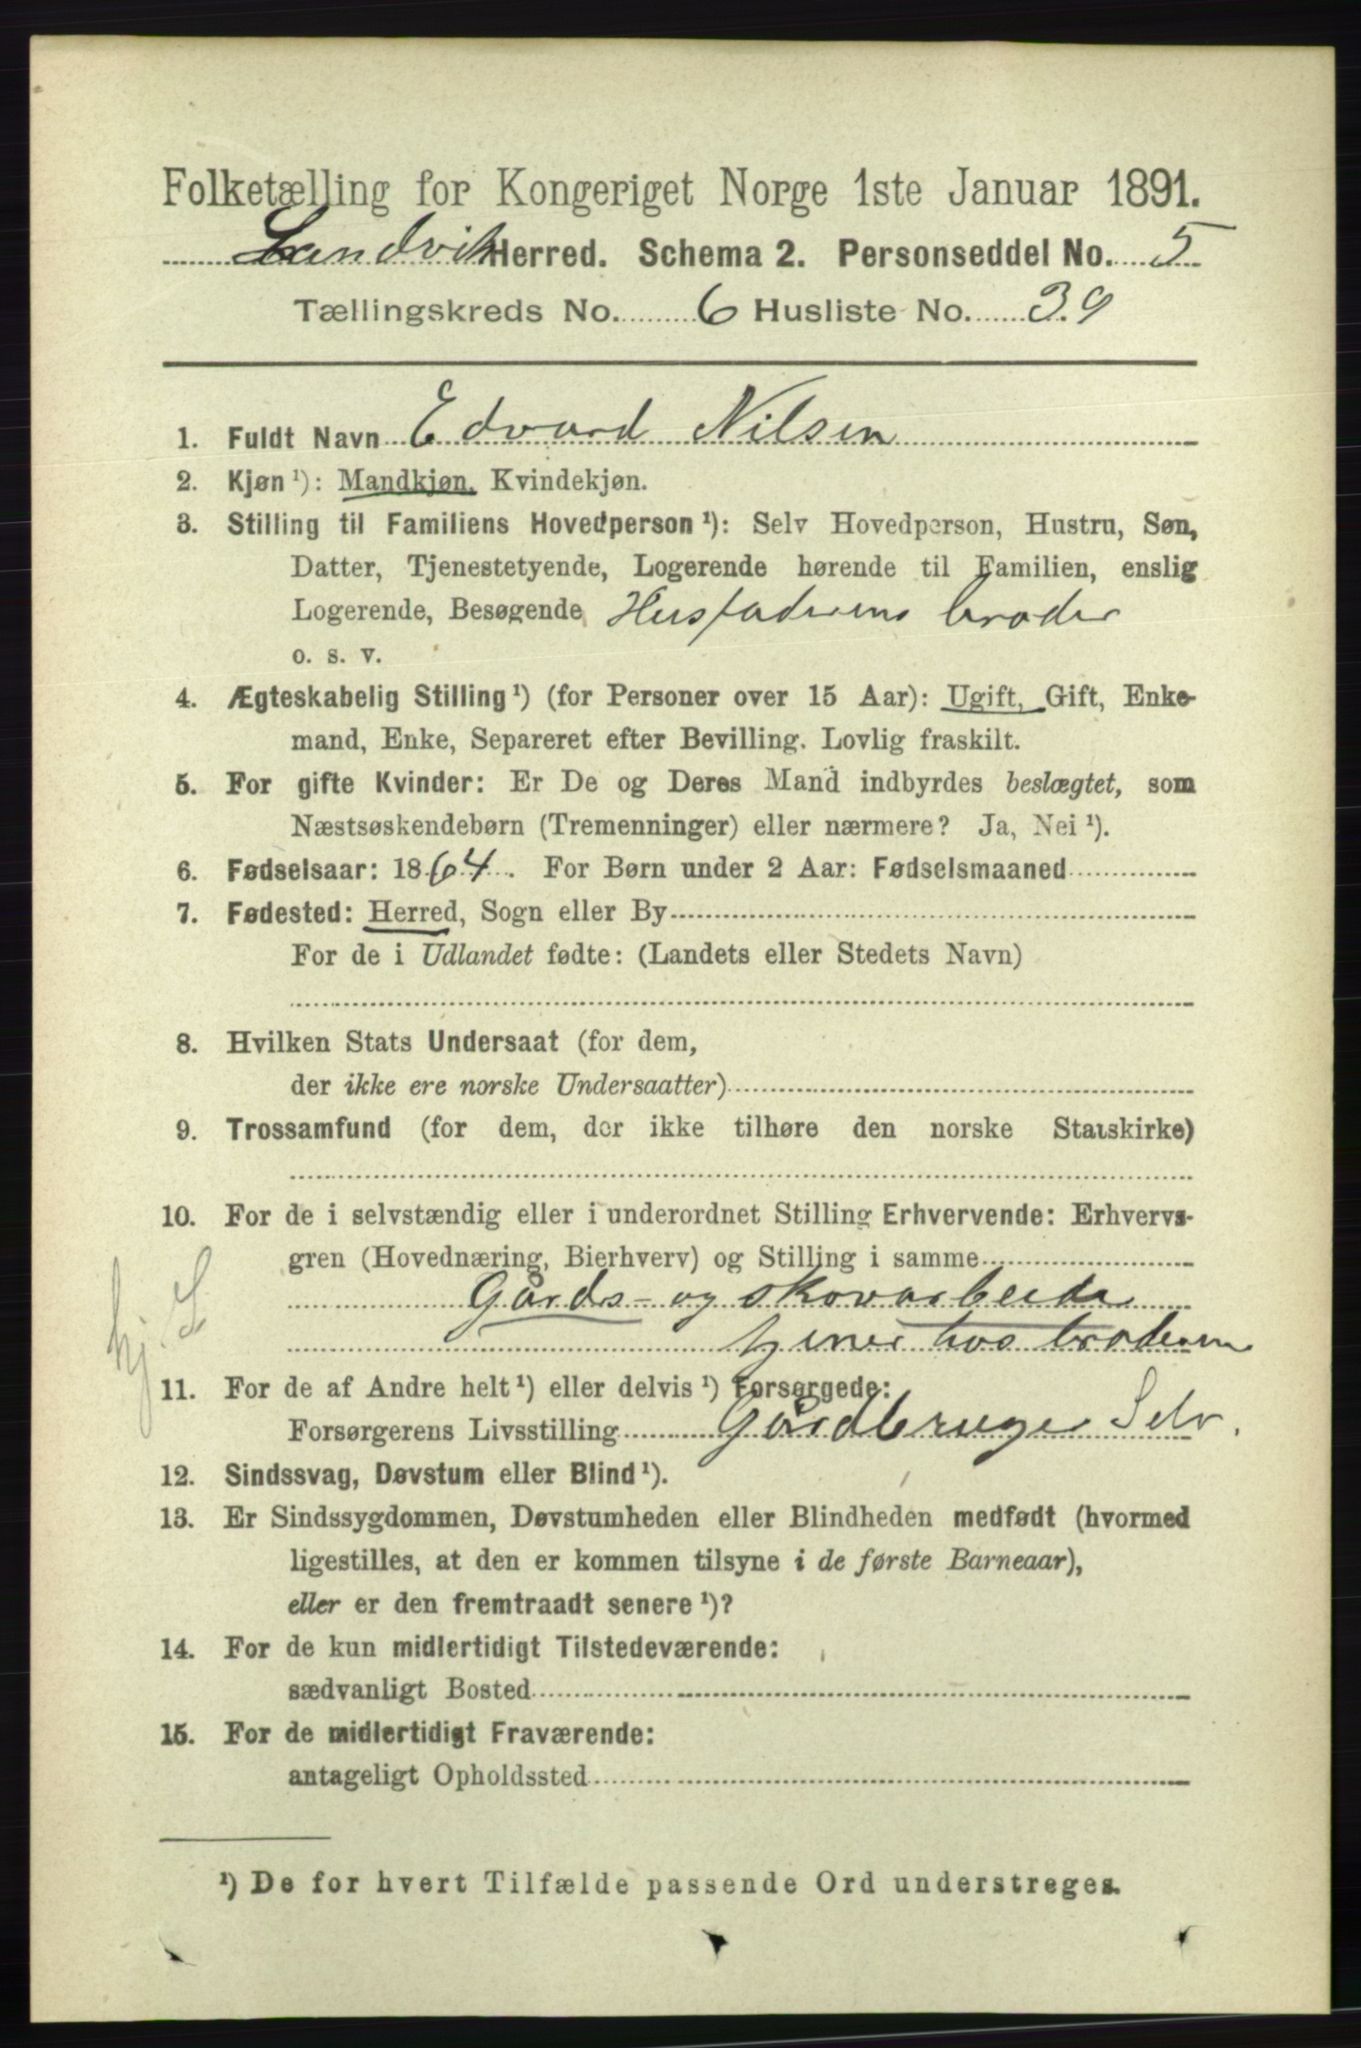 Folketælling for Kongeriget Norge 1ste Januar 1891.
Landvik Herred. Schema 2. Personseddel No. 5
Tællingskreds No. 6 Husliste No. 39
1. Fuldt Navn Edvard Nilsen
2. Kjøn ¹): Mandkjøn, Kvindekjøn.
3. Stilling til Familiens Hovedperson ¹): Selv Hovedperson, Hustru, Søn,
Datter, Tjenestetyende, Logerende hørende til Familien, enslig
Logerende, Besøgende Husfaderens broder
o. s. v.
4. Ægteskabelig Stilling ¹) (for Personer over 15 Aar): Ugift, Gift, Enke-
mand, Enke, Separeret efter Bevilling. Lovlig fraskilt.
5. For gifte Kvinder: Er De og Deres Mand indbyrdes beslægtet, som
Næstsøskendebørn (Tremenninger) eller nærmere? Ja, Nei ¹).
6. Fødselsaar: 1864. For Børn under 2 Aar: Fødselsmaaned
7. Fødested: Herred, Sogn eller By
For de i Udlandet fødte: (Landets eller Stedets Navn)
8. Hvilken Stats Undersaat (for dem,
der ikke ere norske Undersaatter)
9. Trossamfund (for dem, der ikke tilhøre den norske Statskirke)
10. For de i selvstændig eller i underordnet Stilling Erhvervende: Erhvervs-
gren (Hovednæring, Bierhverv) og Stilling i samme
Gårds- og skovarbeider
hj. S tjener hos broderen
11. For de af Andre helt ¹) eller delvis ¹) Forsørgede:
Forsørgerens Livsstilling Gårdbruger Selv.
12. Sindssvag, Døvstum eller Blind ¹).
13. Er Sindssygdommen, Døvstumheden eller Blindheden medfødt (hvormed
ligestilles, at den er kommen tilsyne i de første Barneaar),
eller er den fremtraadt senere ¹)?
14. For de kun midlertidigt Tilstedeværende:
sædvanligt Bosted
15. For de midlertidigt Fraværende:
antageligt Opholdssted
¹) De for hvert Tilfælde passende Ord understreges.